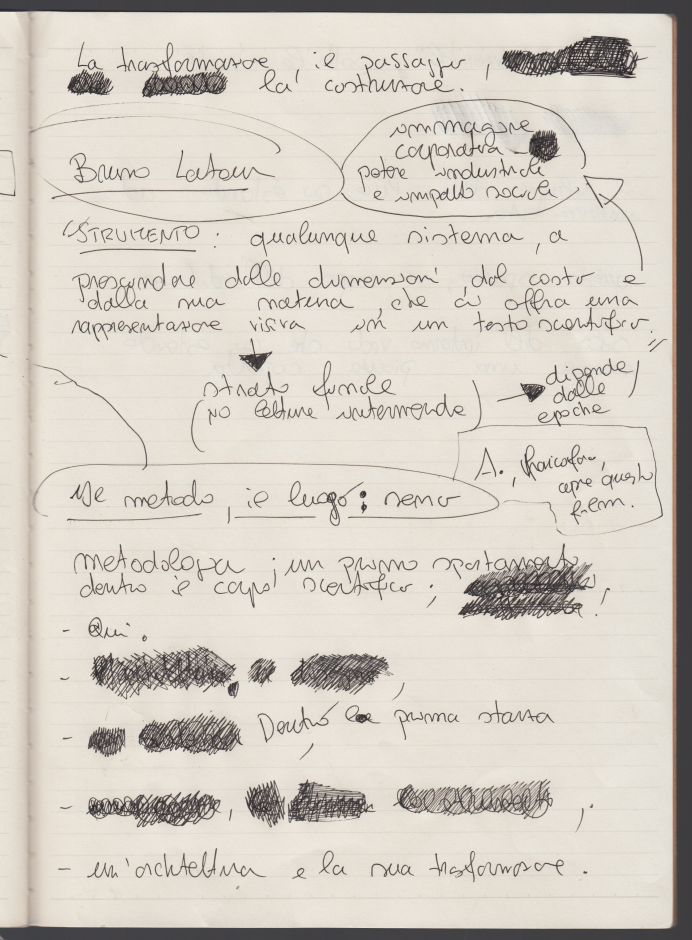 La trasformazione il passaggio,
la costruzione.
immagine
corporativa
potere industriale
e impatto sociale
Bruno Latour
"STRUMENTO: qualunque sistema, a
prescindere dalle dimensioni, dal costo e
dalla sua natura, che ci offra una
rappresentazione visiva in un testo scientifico."
strato finale
(no letture intermedie)
dipende
dalle
epoche
A.,
apre questo
film.
metodo, il luogo: seno
metodologia; un primo spostamento
dentro i corpi scientifico;
- Qui.
-
- Dentro la prima stanza
-
- un'architettura e la sua trasformazione.